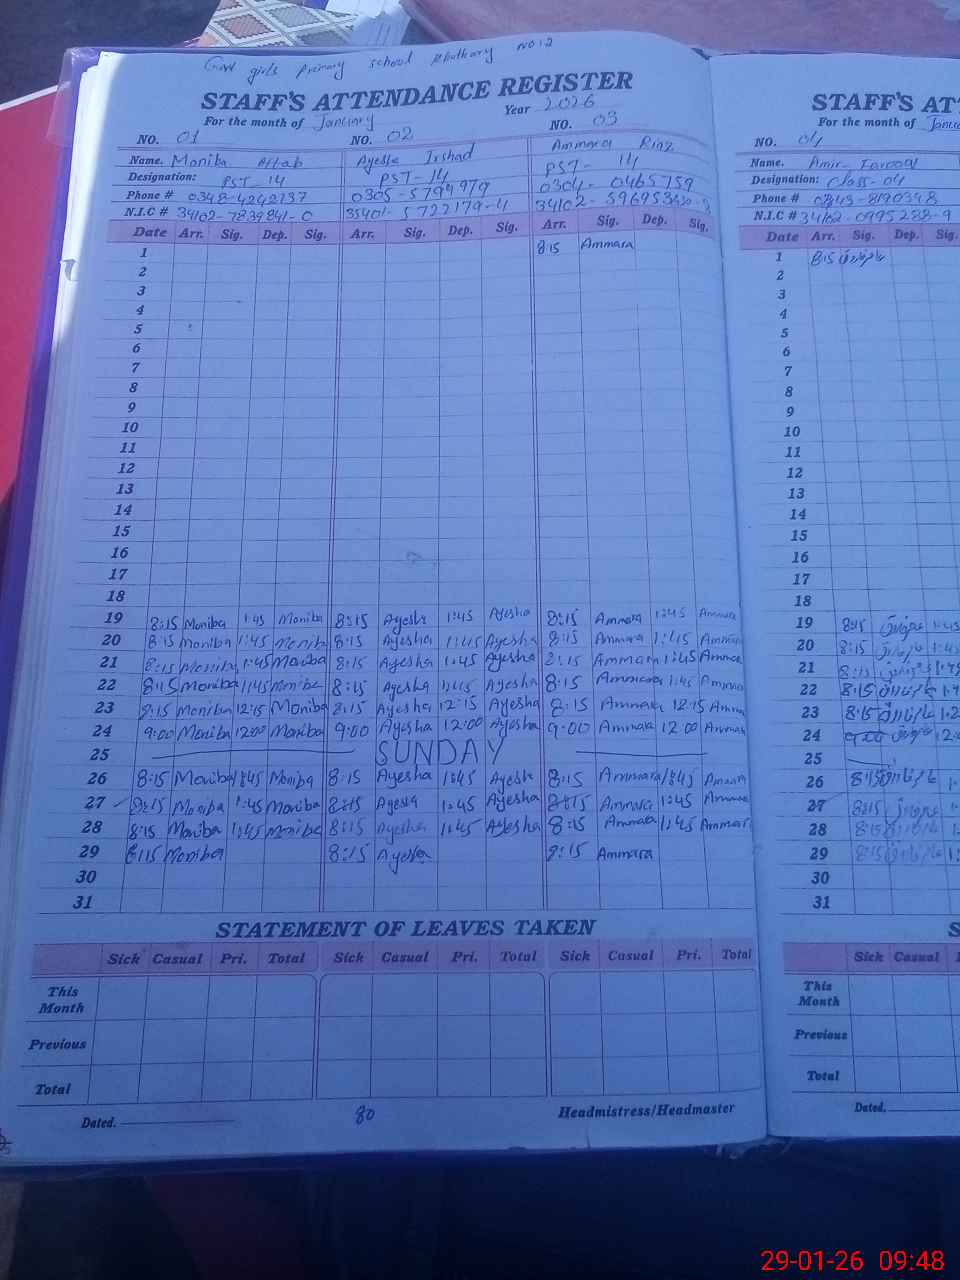 Govt girls primary school Bhutkary NO:2
STAFF'S ATTENDANCE REGISTER
For the month of January Year 2026
NO. 01 NO. 02 NO. 03
Name. Moniba Aftab Ayesha Irshad Ammara Riaz
Designation: PST-14 PST-14 PST-14
Phone # 0348-4242737 0305-5794979 0304-0465759
N.I.C # 34102-7839841-0 35401-5722179-4 34102-
Date Arr. Sig. Dep. Sig. Arr. Sig. Dep. Sig. Arr. Sig. Dep. Sig.
1 8:15 Ammara
2
3
4
5
6
7
8
9
10
11
12
13
14
15
16
17
18
19 8:15 Moniba 1:45 Moniba 8:15 Ayesha 1:45 Ayesha 8:15 Ammara 1:45 Ammara
20 8:15 Moniba 1:45 Moniba 8:15 Ayesha 1:45 Ayesha 8:15 Ammara 1:45 Ammara
21 8:15 Moniba 1:45 Moniba 8:15 Ayesha 1:45 Ayesha 8:15 Ammara 1:45 Ammara
22 8:15 Moniba 1:45 Moniba 8:15 Ayesha 1:45 Ayesha 8:15 Ammara 1:45 Ammara
23 8:15 Moniba 12:15 Moniba 8:15 Ayesha 12:15 Ayesha 8:15 Ammara 12:15 Amma
24 9:00 Moniba 12:00 Moniba 9:00 Ayesha 12:00 Ayesha 9:00 Ammara 12:00 Ammar
25 SUNDAY
26 8:15 Moniba 1:45 Moniba 8:15 Ayesha 1:45 Ayesha 8:15 Ammara 1:45 Ammara
27 8:15 Moniba 1:45 Moniba 8:15 Ayesha 1:45 Ayesha 8:15 Ammara 1:45 Ammara
28 8:15 Moniba 1:45 Moniba 8:15 Ayesha 1:45 Ayesha 8:15 Ammara 1:45 Ammara
29 8:15 Moniba 8:15 Ayesha 8:15 Ammara
30
31
STATEMENT OF LEAVES TAKEN
Sick Casual Pri. Total Sick Casual Pri. Total Sick Casual Pri. Total
This Month
Previous
Total
Dated. 80 Headmistress/Headmaster
STAFF'S AT
For the month of Janu
NO. 04
Name. Amir Farooq
Designation: Class-04
Phone # 0343-8190348
N.I.C # 34102-0995288-9
Date Arr. Sig. Dep. Sig.
1 8:15
2
3
4
5
6
7
8
9
10
11
12
13
14
15
16
17
18
19 8:15 1:45
20 8:15 1:4
21 8:15 1:45
22 8:15 1:4
23 8:15 1:2
24 9:00 12:0
25
26 8:15
27 8:15
28 8:15
29 8:15
30
31
S
Sick Casual
This Month
Previous
Total
Dated.
29-01-26 09:48